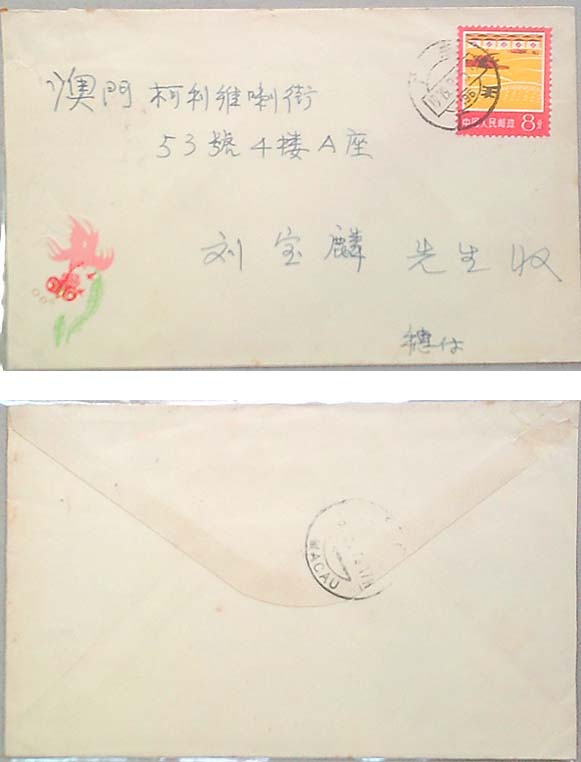 中国人民邮政 8分
澳門 柯利維喇街
53號 4楼 A座
刘宝麟 先生 收
穗付
MACAU